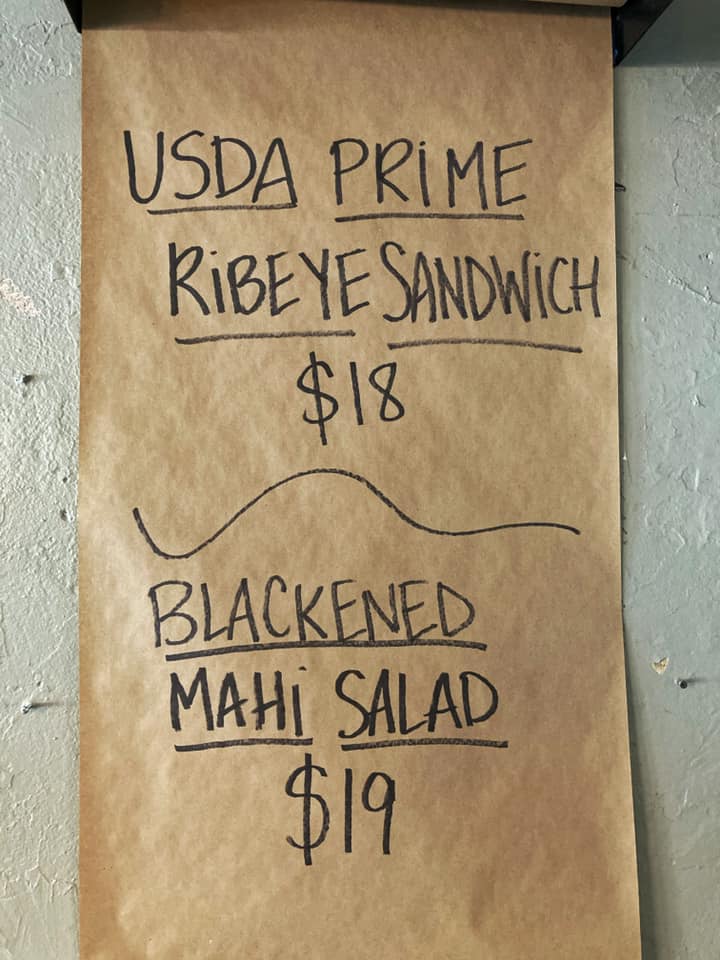 USDA PRiME
RiBEYE SANDWiCH
$18
BLACKENED
MAHi SALAD
$19